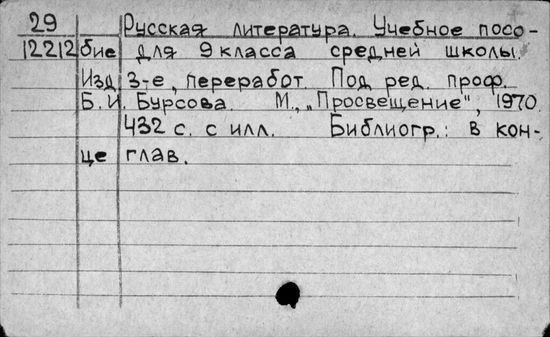 29 Русская литература. Учебное посо-
12212 бие для 9 класса средней школы.
Изд 3-е, переработ. Под ред. проф.
Б. И. Бурсова. М., „Просвещение", 1970.
432 с. с илл. Библиогр.: в кон-
це глав.